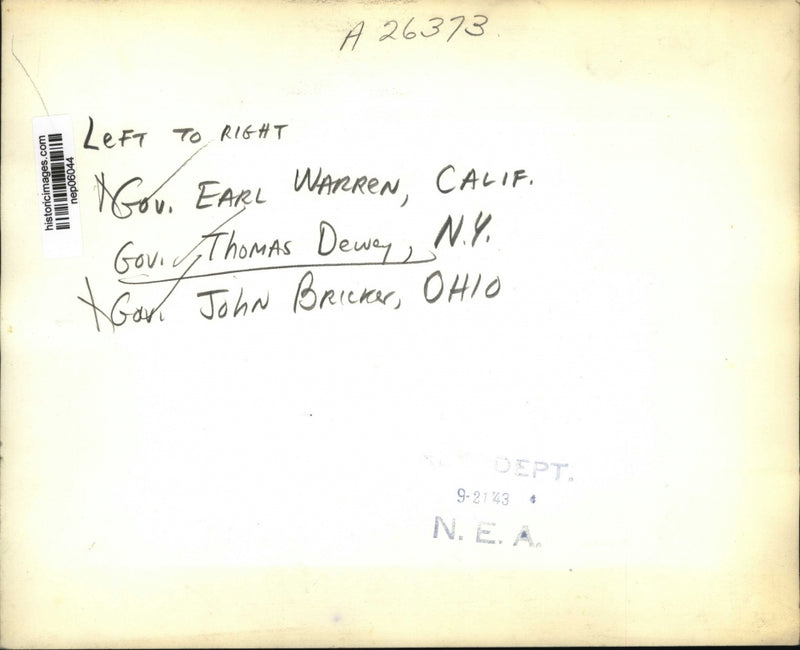 A 26373
historicimages.com
nep06044
Left to Right
Gov. Earl Warren, Calif.
Gov. Thomas Dewey, N.Y.
Gov. John Bricker, Ohio
DEPT.
9-21'43
N. E. A.